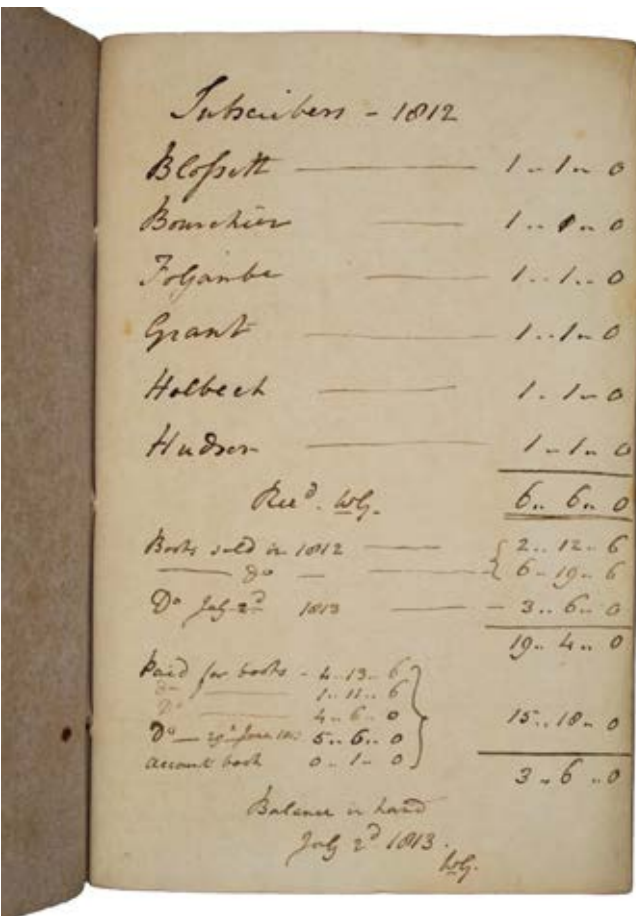 Subscribers - 1812
Blossett — 1 .. 1 .. 0
Bourchier — 1 .. 1 .. 0
Foljambe — 1 .. 1 .. 0
Grant — 1 .. 1 .. 0
Holbech — 1 .. 1 .. 0
Hudson — 1 .. 1 .. 0
Recd. WG. 6 .. 6 .. 0
Books sold in 1812 — 2 .. 12 .. 6
— Do — 6 .. 19 .. 6
Do July 2d 1813 — 3 .. 6 .. 0
19 .. 4 .. 0
Paid for books - 4 .. 13 .. 6
Do — 1 .. 11 .. 6
Do — 4 .. 6 .. 0 15 .. 18 .. 0
Do — 29 June 5 .. 6 .. 0
account book 0 .. 1 .. 0
3 .. 6 .. 0
Balance in hand
July 2d 1813.
WG.